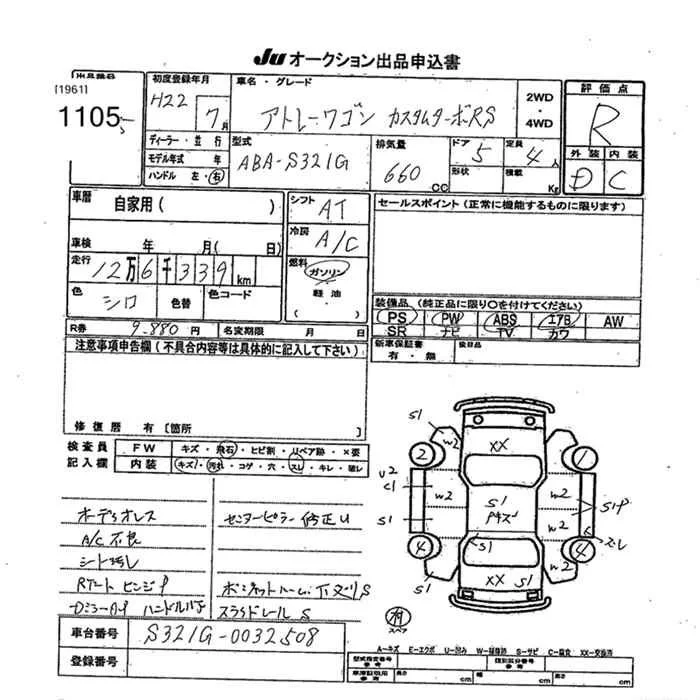 Ju オークション出品申込書
出品番号
[1961]
1105
初度登録年月
H22 7月
車名・グレード
アトレーワゴン カスタムターボRS
2WD
・
4WD
評価点
R
ディーラー・並行
モデル年式 年
ハンドル 左・右
型式
ABA-S321G
排気量
660 CC
ドア 5
形状
定員 4人
積載 Kg
外装 内装
D C
車歴
自家用( )
シフト AT
セールスポイント(正常に機能するものに限ります)
冷房 A/C
車検 年 月( 日)
走行 12万6千339km
燃料
ガソリン
軽油・
( )
色 シロ 色替 色コード
装備品 (純正品に限り○を付けてください)
PS PW ABS エアB AW
SR ナビ TV カワ
R券 9.880円 名変期限 月 日
新車保証書 後日品
有・無
注意事項申告欄(不具合内容等は具体的に記入して下さい)
修復歴 有〔箇所 〕
検査員
記入欄
FW キズ・飛石・ヒビ割・リペア跡・×要
内装 キズ・汚れ・コゲ・穴・スレ・キレ・破レ
オーディオレス
A/C不良
シート汚レ
センターピラー修正U
S321G-0032508
車台番号
登録番号
スライドレール S
S1
W2
XX
2
1
U2
C1
W2
W2
S1
S1
W2
W2
S1P
スレ
4
4
S1
S1
XX
S1
スペア
A-キズ E-エクボ U-凹み W-補修跡 S-サビ C-腐食 XX-交換済
型式指定番号
参考
類別区分番号
参考
車庫証明用
参考
長さ cm 幅 cm 高さ cm